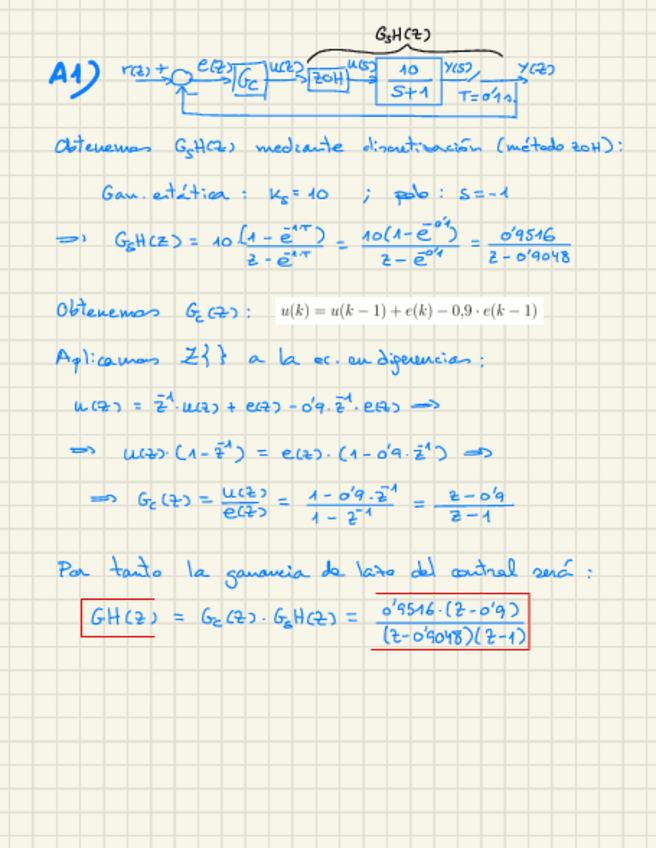 GₛH(z)
A1) r(z) + e(z) G_C u(z) ZOH u(s) 10/(s+1) y(s) y(z)
T=0'1s.
Obtenemos GₛH(z) mediante discretización (método ZOH):
Gan. estática : Kₛ = 10 ; polo : s=-1
⇒ GₛH(z) = 10(1-e^{-1·T})/(z-e^{-1·T}) = 10(1-e^{-0'1})/(z-e^{-0'1}) = 0'9516/(z-0'9048)
Obtenemos G_C(z) : u(k) = u(k − 1) + e(k) − 0,9 · e(k − 1)
Aplicamos Z{ } a la ec. en diferencias :
u(z) = z^{-1}·u(z) + e(z) - 0'9·z^{-1}·e(z) ⇒
⇒ u(z)·(1-z^{-1}) = e(z)·(1-0'9·z^{-1}) ⇒
⇒ G_C(z) = u(z)/e(z) = (1-0'9·z^{-1})/(1-z^{-1}) = (z-0'9)/(z-1)
Por tanto la ganancia de lazo del control será :
GH(z) = G_C(z)·GₛH(z) = 0'9516·(z-0'9)/((z-0'9048)(z-1))